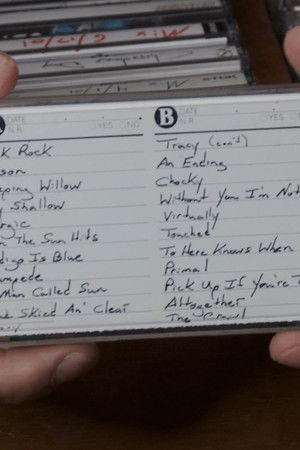 Mix
Mix 4/1/01
DATE
N.R. YES NO
k Rock
son
eping Willow
y Shallow
ergic
n The Sun Hits
digo Is Blue
mpede
Man Called Sun
ue Skied An' Clear
acy
B DATE
N.R. YES
Tracy (con't)
An Ending
Chocky
Without You I'm Not
Virtually
Touched
To Here Knows When
Primal
Pick Up If You're
Altogether
The Crawl